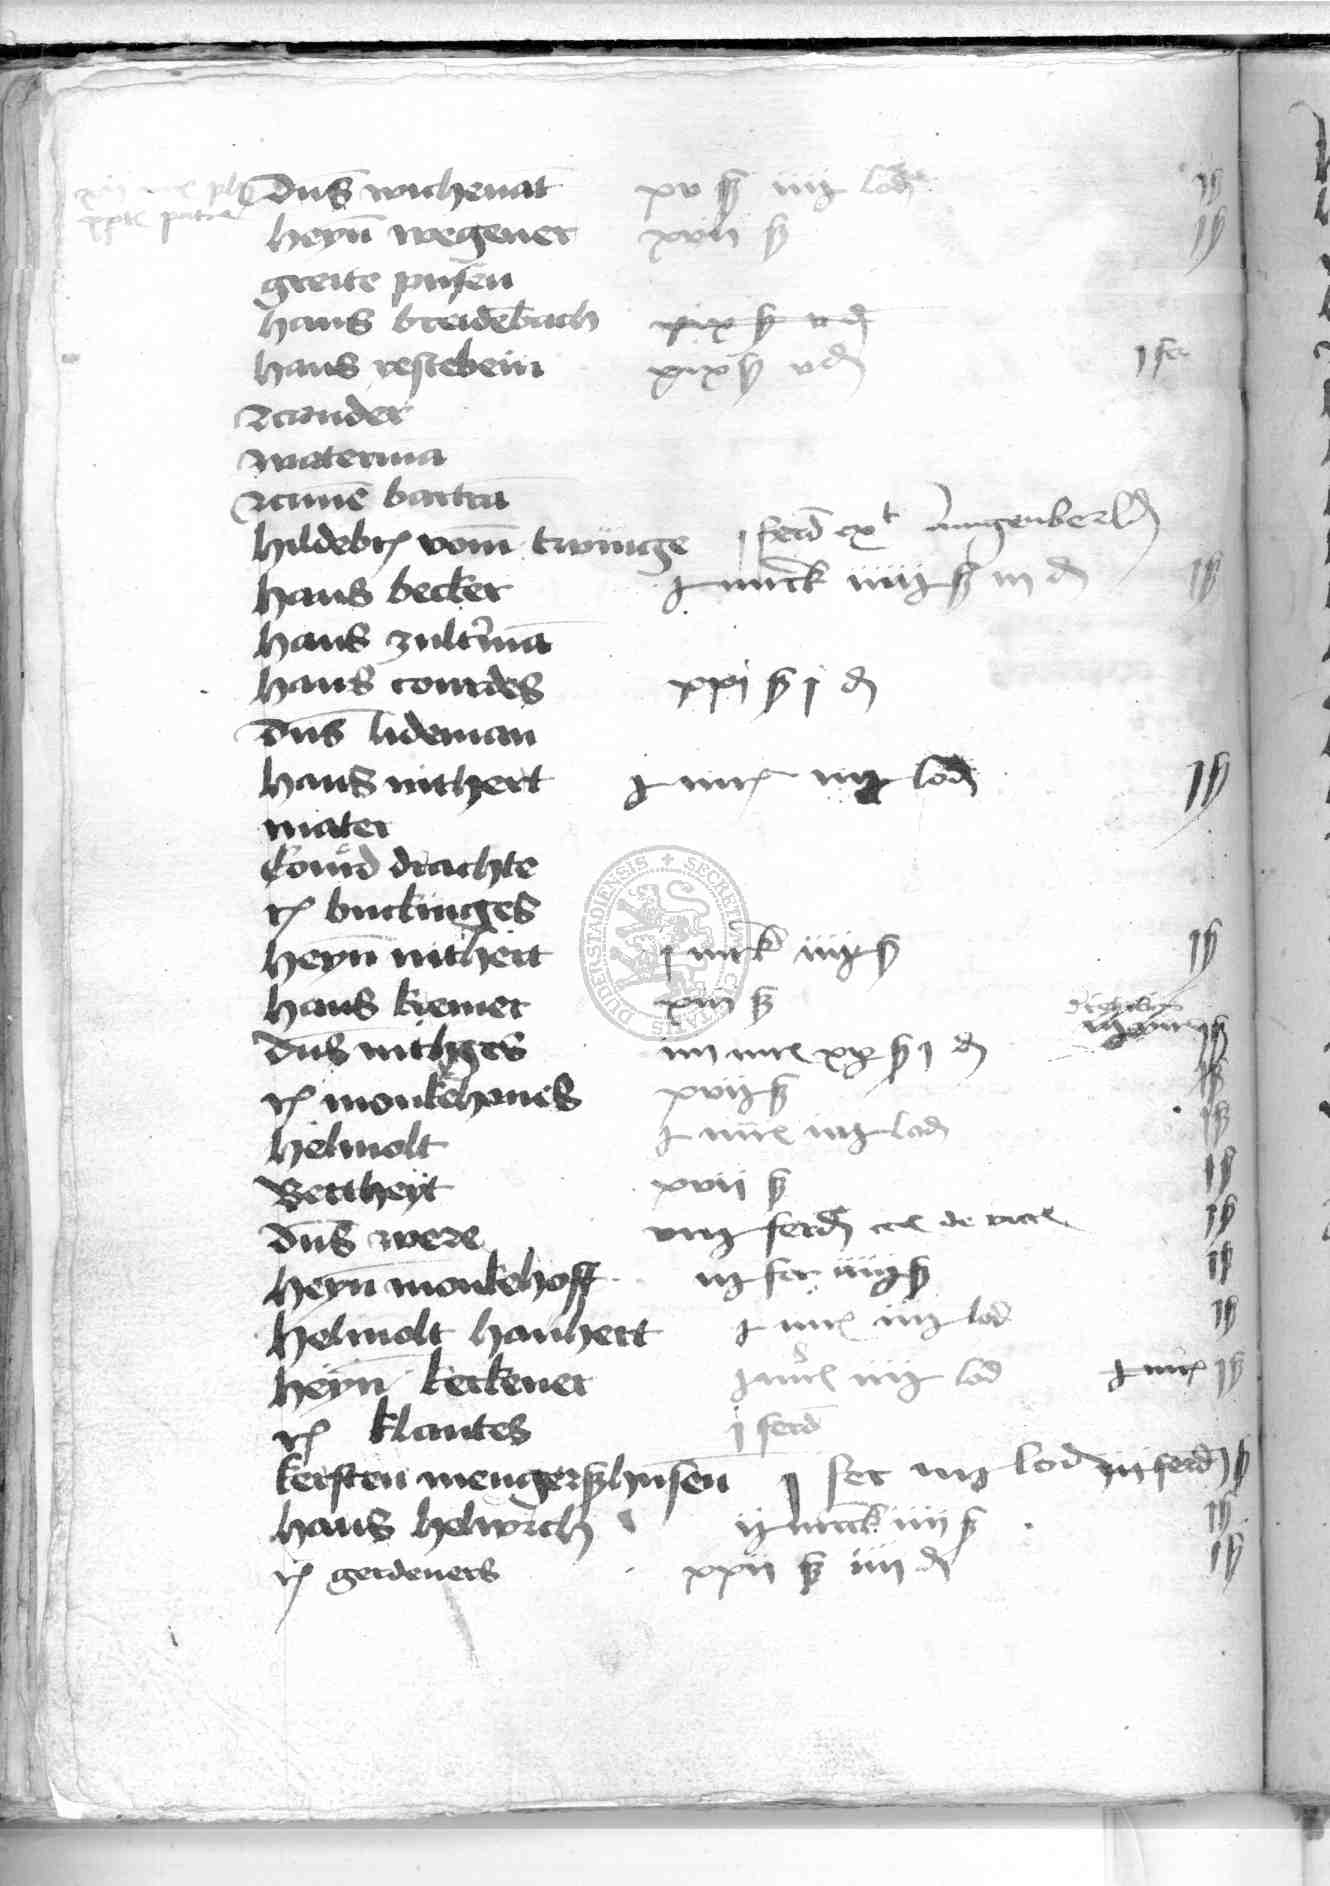 Dns wichenat xv ß iiij lod jß
heyn wegener xvij ß jß
greite pusen
hans breidebach xix ß v d
hans restebein xix ß v d j fer
waterma
bartra
hildebr vom twinge j ferd
hans becker j marck iiij ß iij d jß
hans zulterma
hans conrdes xxj ß j d
Dns lideman
hans nithert j mr iiij lod jß
mater
Conrd drachte
r buckinges
heyn nithert j marck iiij ß jß
hans kremer xiij ß
dns nithges iiij mr xx ß j d jß
r monkehoues xvij ß jß
helmolt j mr iiij lod jß
Bertheyt xvij ß jß
dns were ferd jß
heyn monkehoff iij fer iiij ß jß
helmolt hanhert j mr iiij lod jß
heyn kerkener j mr iiij lod j mr jß
r klantes j ferd
kersten mengerßhusen j fer iiij lod iij ferd jß
hans helwich ij marck iiij ß jß
r gerdeners xxij ß iiij d jß
SECRETUM CIVITATIS DUDERSTADIENSIS